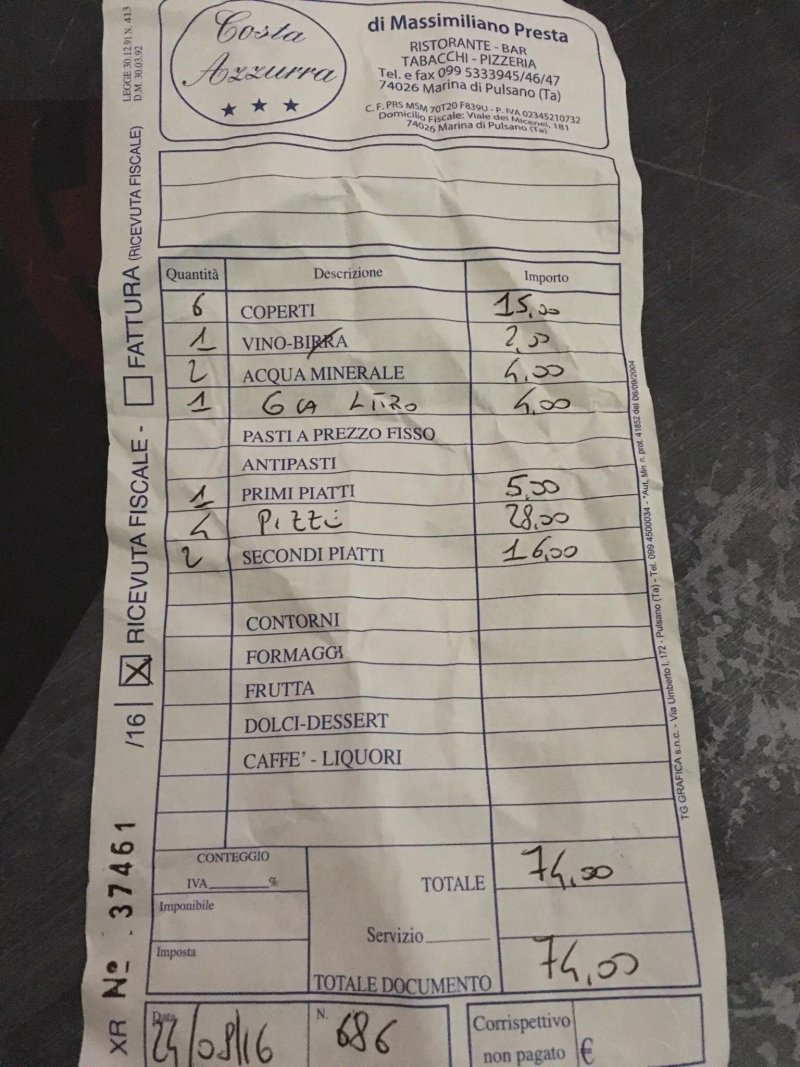 Costa Azzurra
di Massimiliano Presta
RISTORANTE - BAR
TABACCHI - PIZZERIA
Tel. e fax 099 5333945/46/47
74026 Marina di Pulsano (Ta)
C. F. PRS MSM 70T20 F839U - P. IVA 02345210732
Domicilio Fiscale: Viale dei Micenei, 181
74026 Marina di Pulsano (Ta)
LEGGE 30.12.91 N. 413
D.M. 30.03.92
XR Nº 37461 /16 X RICEVUTA FISCALE - FATTURA (RICEVUTA FISCALE)
Quantità Descrizione Importo
6 COPERTI 15,00
1 VINO-BIRRA 2,00
2 ACQUA MINERALE 4,00
1 LITRO 4,00
PASTI A PREZZO FISSO
ANTIPASTI
1 PRIMI PIATTI 5,00
4 PIZZE 28,00
2 SECONDI PIATTI 16,00
CONTORNI
FORMAGGI
FRUTTA
DOLCI-DESSERT
CAFFE' - LIQUORI
CONTEGGIO
IVA %
Imponibile
Imposta
TOTALE 74,00
Servizio
TOTALE DOCUMENTO 74,00
Data 24/08/16
N. 686
Corrispettivo
non pagato €
TG GRAFICA s.n.c. - Via Umberto I, 172 - Pulsano (Ta) - Tel. 099 4500034 - *Aut. Min. n. prot. 41852 del 06/09/2004